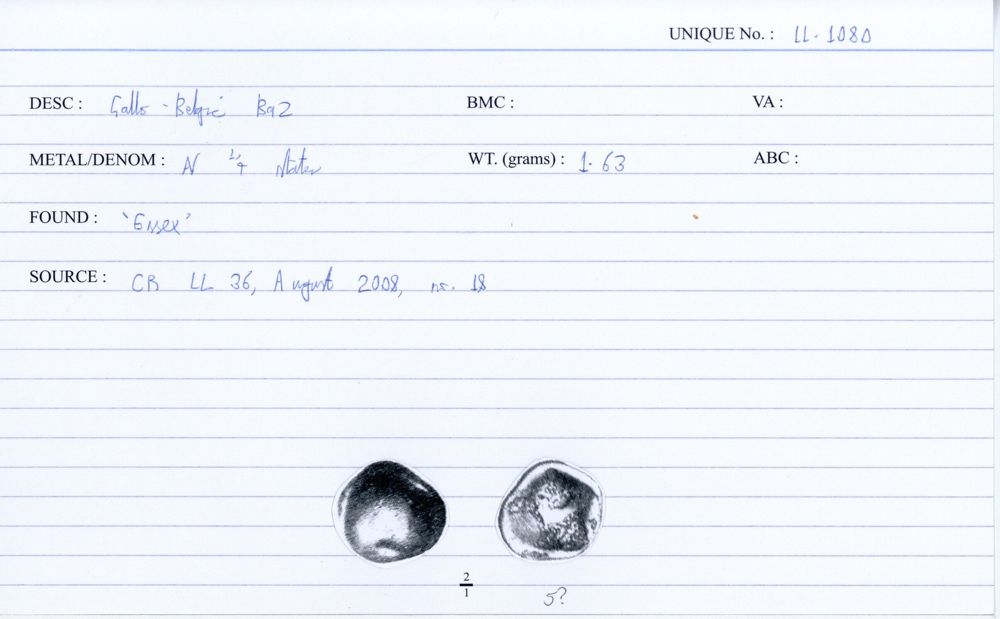 UNIQUE No. : LL. 1080
DESC : Gallo-Belgic Ba2 BMC : VA :
METAL/DENOM : AV 1/4 Stater WT. (grams) : 1.63 ABC :
FOUND : 'Essex'
SOURCE : CR LL 36, August 2008, no. 18
2
1
5?